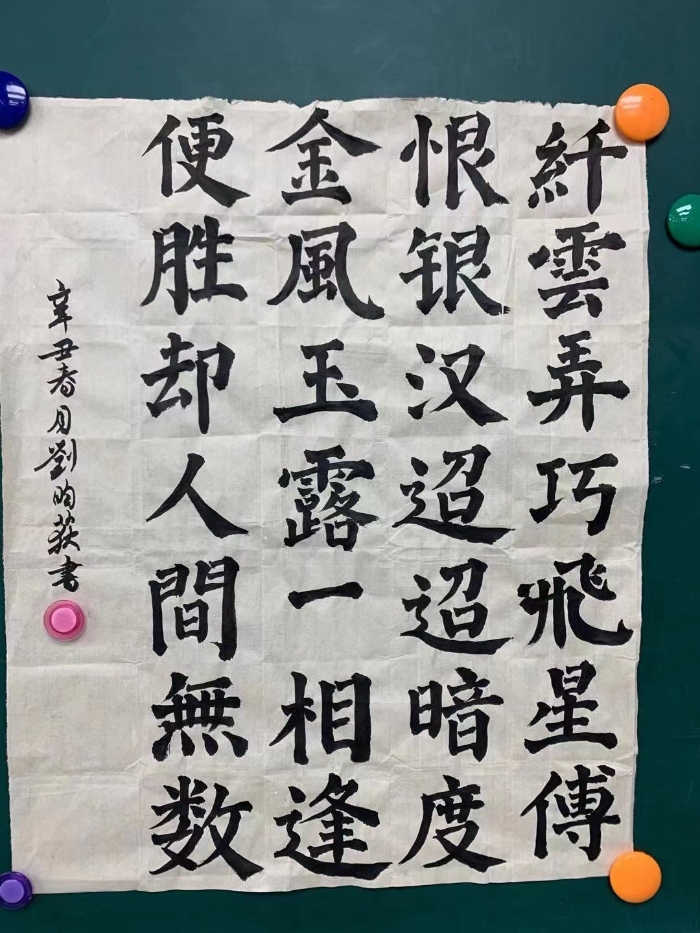 紆雲弄巧飛星傅
恨银汉迢迢暗度
金風玉露一相逢
便胜却人間無数
辛丑春月劉昀荻書